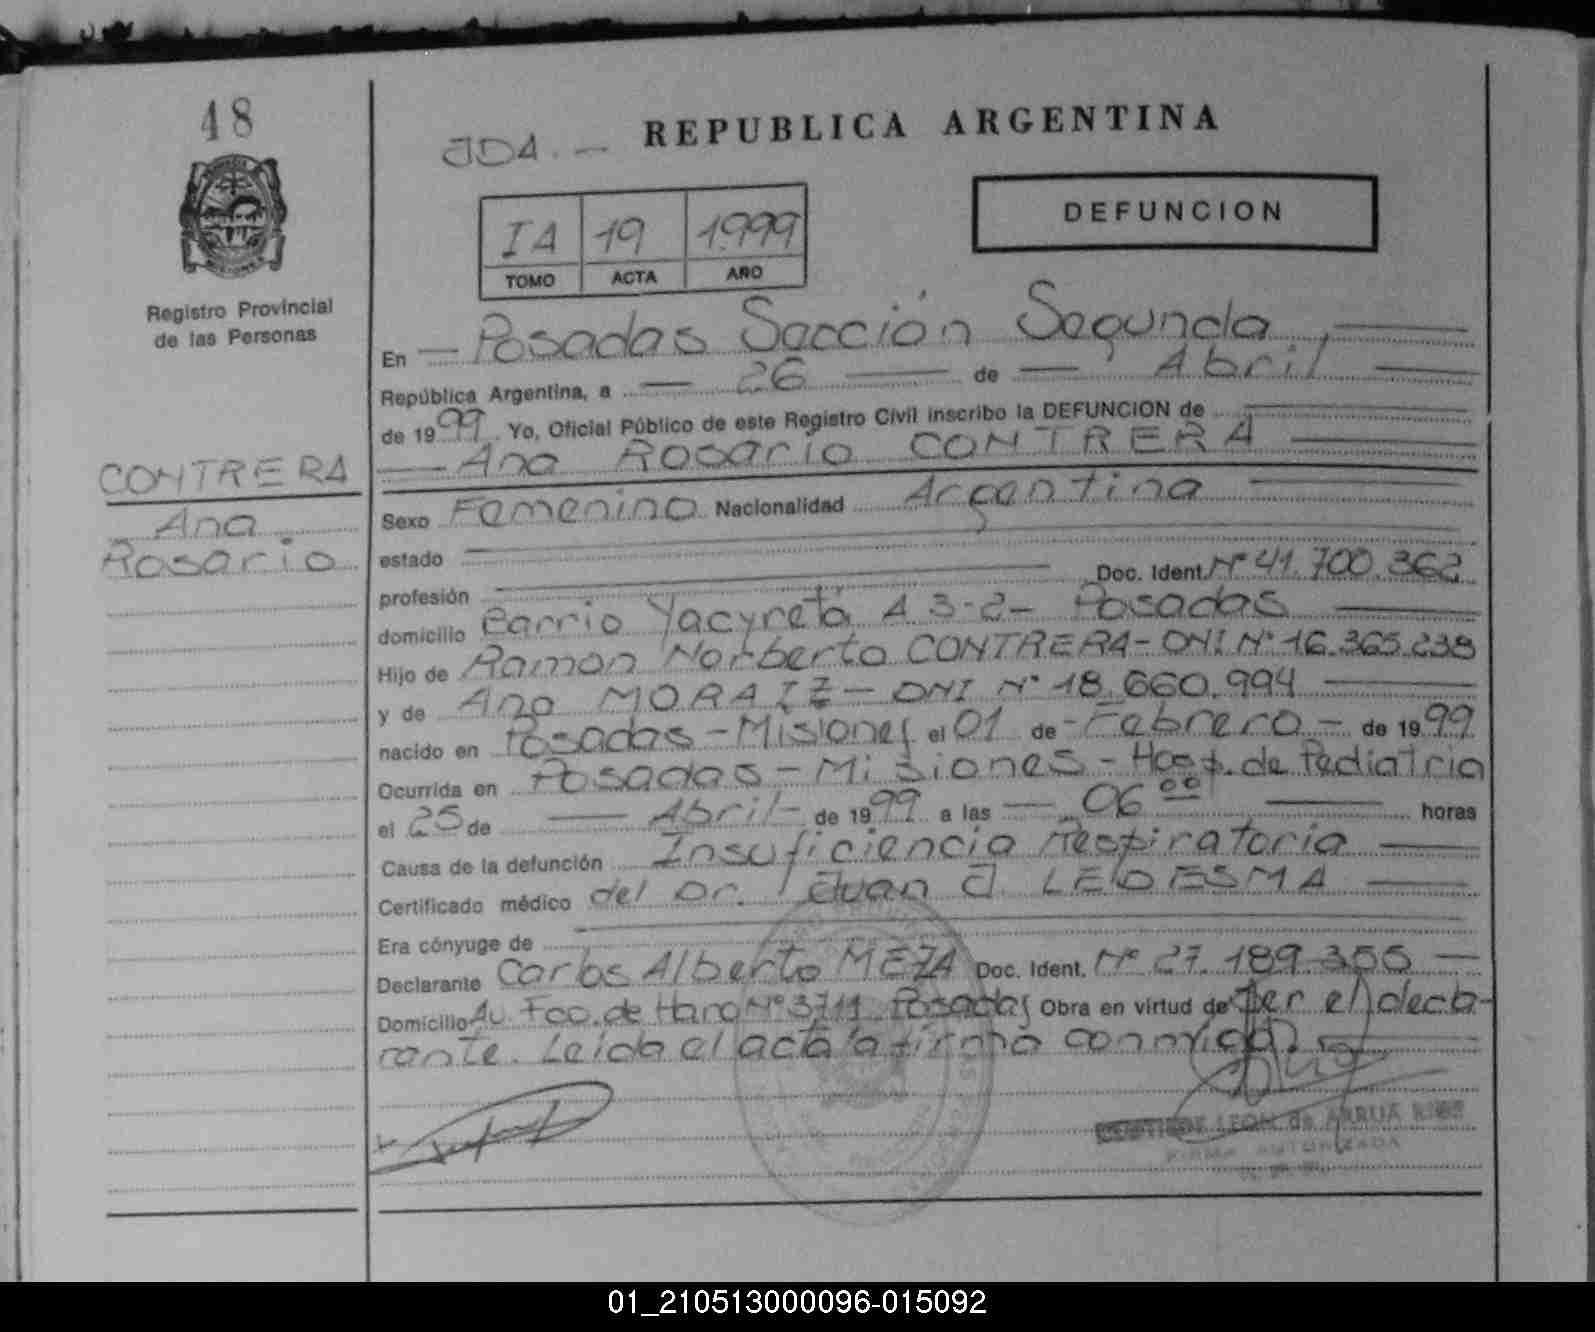 48
JDA.-
REPUBLICA ARGENTINA
DEFUNCION
IA 19 1.999
TOMO ACTA AÑO
Registro Provincial
de las Personas
En - Posadas Sección Segunda,
República Argentina, a - 26 - de - Abril
de 1999. Yo, Oficial Público de este Registro Civil inscribo la DEFUNCION de
Ana Rosario CONTRERA
CONTRERA
Ana
Rosario
Sexo Femenino Nacionalidad Argentina
estado
profesión Doc. Ident. Nº 41.700.362
domicilio Barrio Yacyretá A 3-2- Posadas
Hijo de Ramon Norberto CONTRERA- DNI Nº 16.365.238
y de Ana MORAIZ- DNI Nº 18.660.994
nacido en Posadas-Misiones el 01 de - Febrero - de 1999
Ocurrida en Posadas-Misiones-Hosp. de Pediatria
el 25 de - Abril- de 1999 a las - 06ºº horas
Causa de la defunción Insuficiencia Respiratoria
Certificado médico del Dr. Juan J. LEDESMA
Era cónyuge de
Declarante Carlos Alberto MEZA Doc. Ident. Nº 27.189.355 -
Domicilio Av. Fco. de Haro Nº 3711 Posadas Obra en virtud de Ser el decla-
rante. Leida el acta la firma conmigo.
LEON de ARRUA RIOS
FIRMA AUTORIZADA
01_210513000096-015092